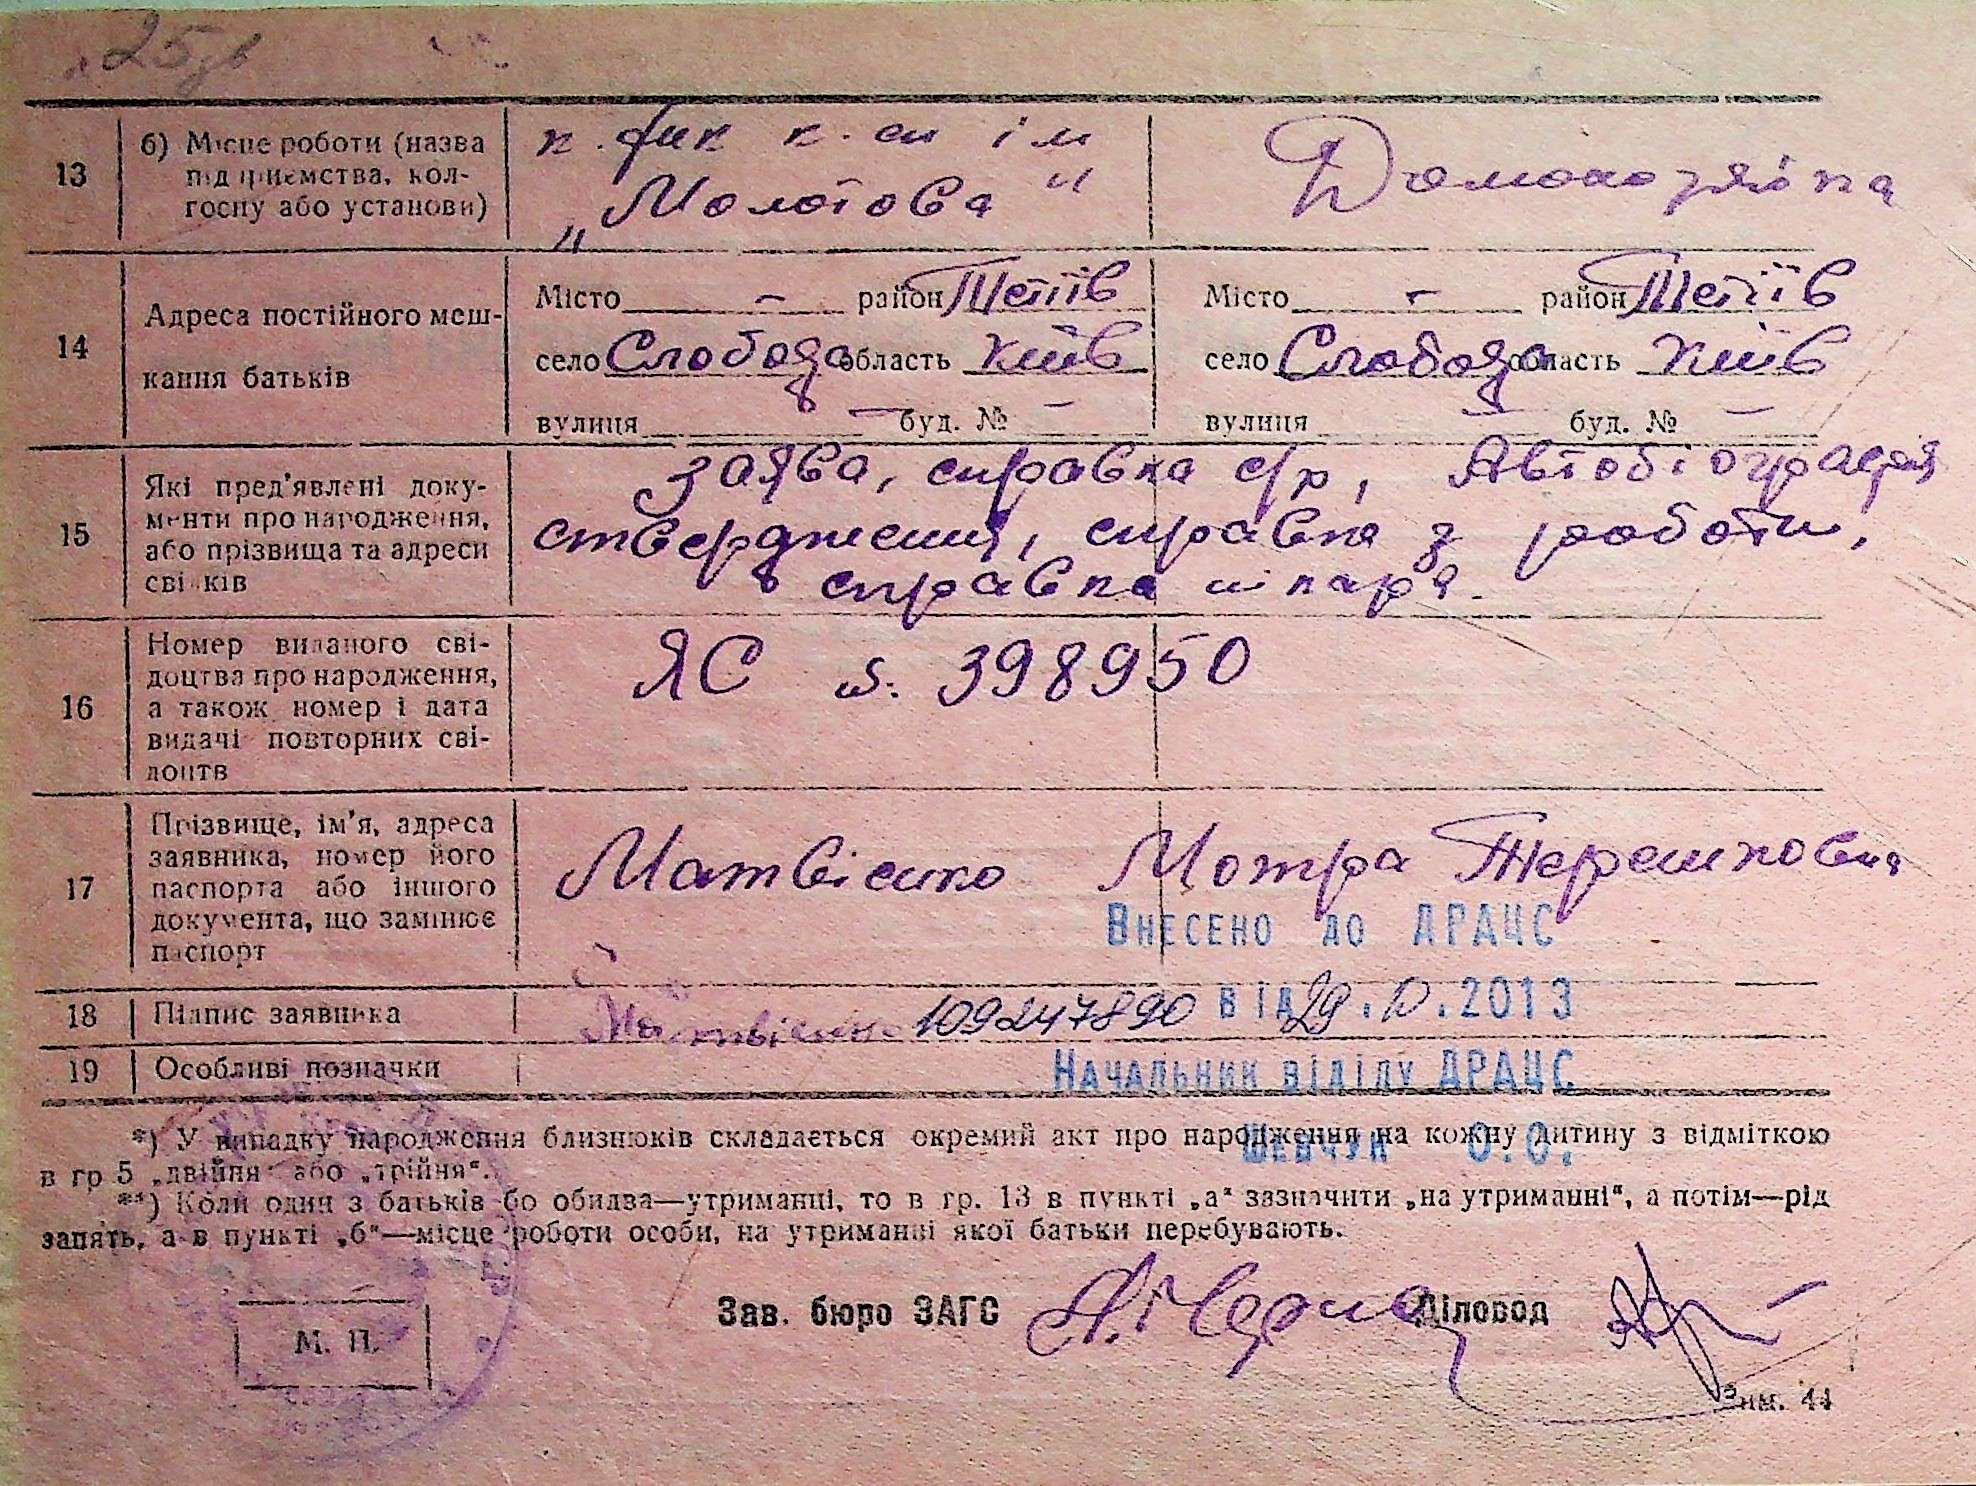 25зв
13
б) Місце роботи (назва
підприємства, кол-
госпу або установи)
к. ім
„Молотова"
Домохозяйка
14
Адреса постійного меш-
кання батьків
Місто - район Тетіїв
село Слобода область Київ
вулиця - буд. № -
Місто - район Тетіїв
село Слобода область Київ
вулиця - буд. № -
15
Які пред'явлені доку-
менти про народження,
або прізвища та адреси
свідків
заява, справка с/р, Автобіографія
ствердження, справка з роботи,
справка лікаря.
16
Номер виданого сві-
доцтва про народження,
а також номер і дата
видачі повторних сві-
доцтв
ЯС № 398950
17
Прізвище, ім'я, адреса
заявника, номер його
паспорта або іншого
документа, що замінює
паспорт
Матвієнко Мотра Терешковна
Внесено до ДРАЦС
18
Підпис заявника
Матвієнко 109247890 від 29.10.2013
19
Особливі позначки
Начальник відділу ДРАЦС
Шевчук О.О.
*) У випадку народження близнюків складається окремий акт про народження на кожну дитину з відміткою
в гр 5 „двійня" або „трійня".
**) Коли один з батьків бо обидва—утриманці, то в гр. 13 в пункті „а" зазначити „на утриманні", а потім—рід
занять, а в пункті „б"—місце роботи особи, на утриманні якої батьки перебувають.
Зав. бюро ЗАГС
Діловод
М. П.
Зам. 44